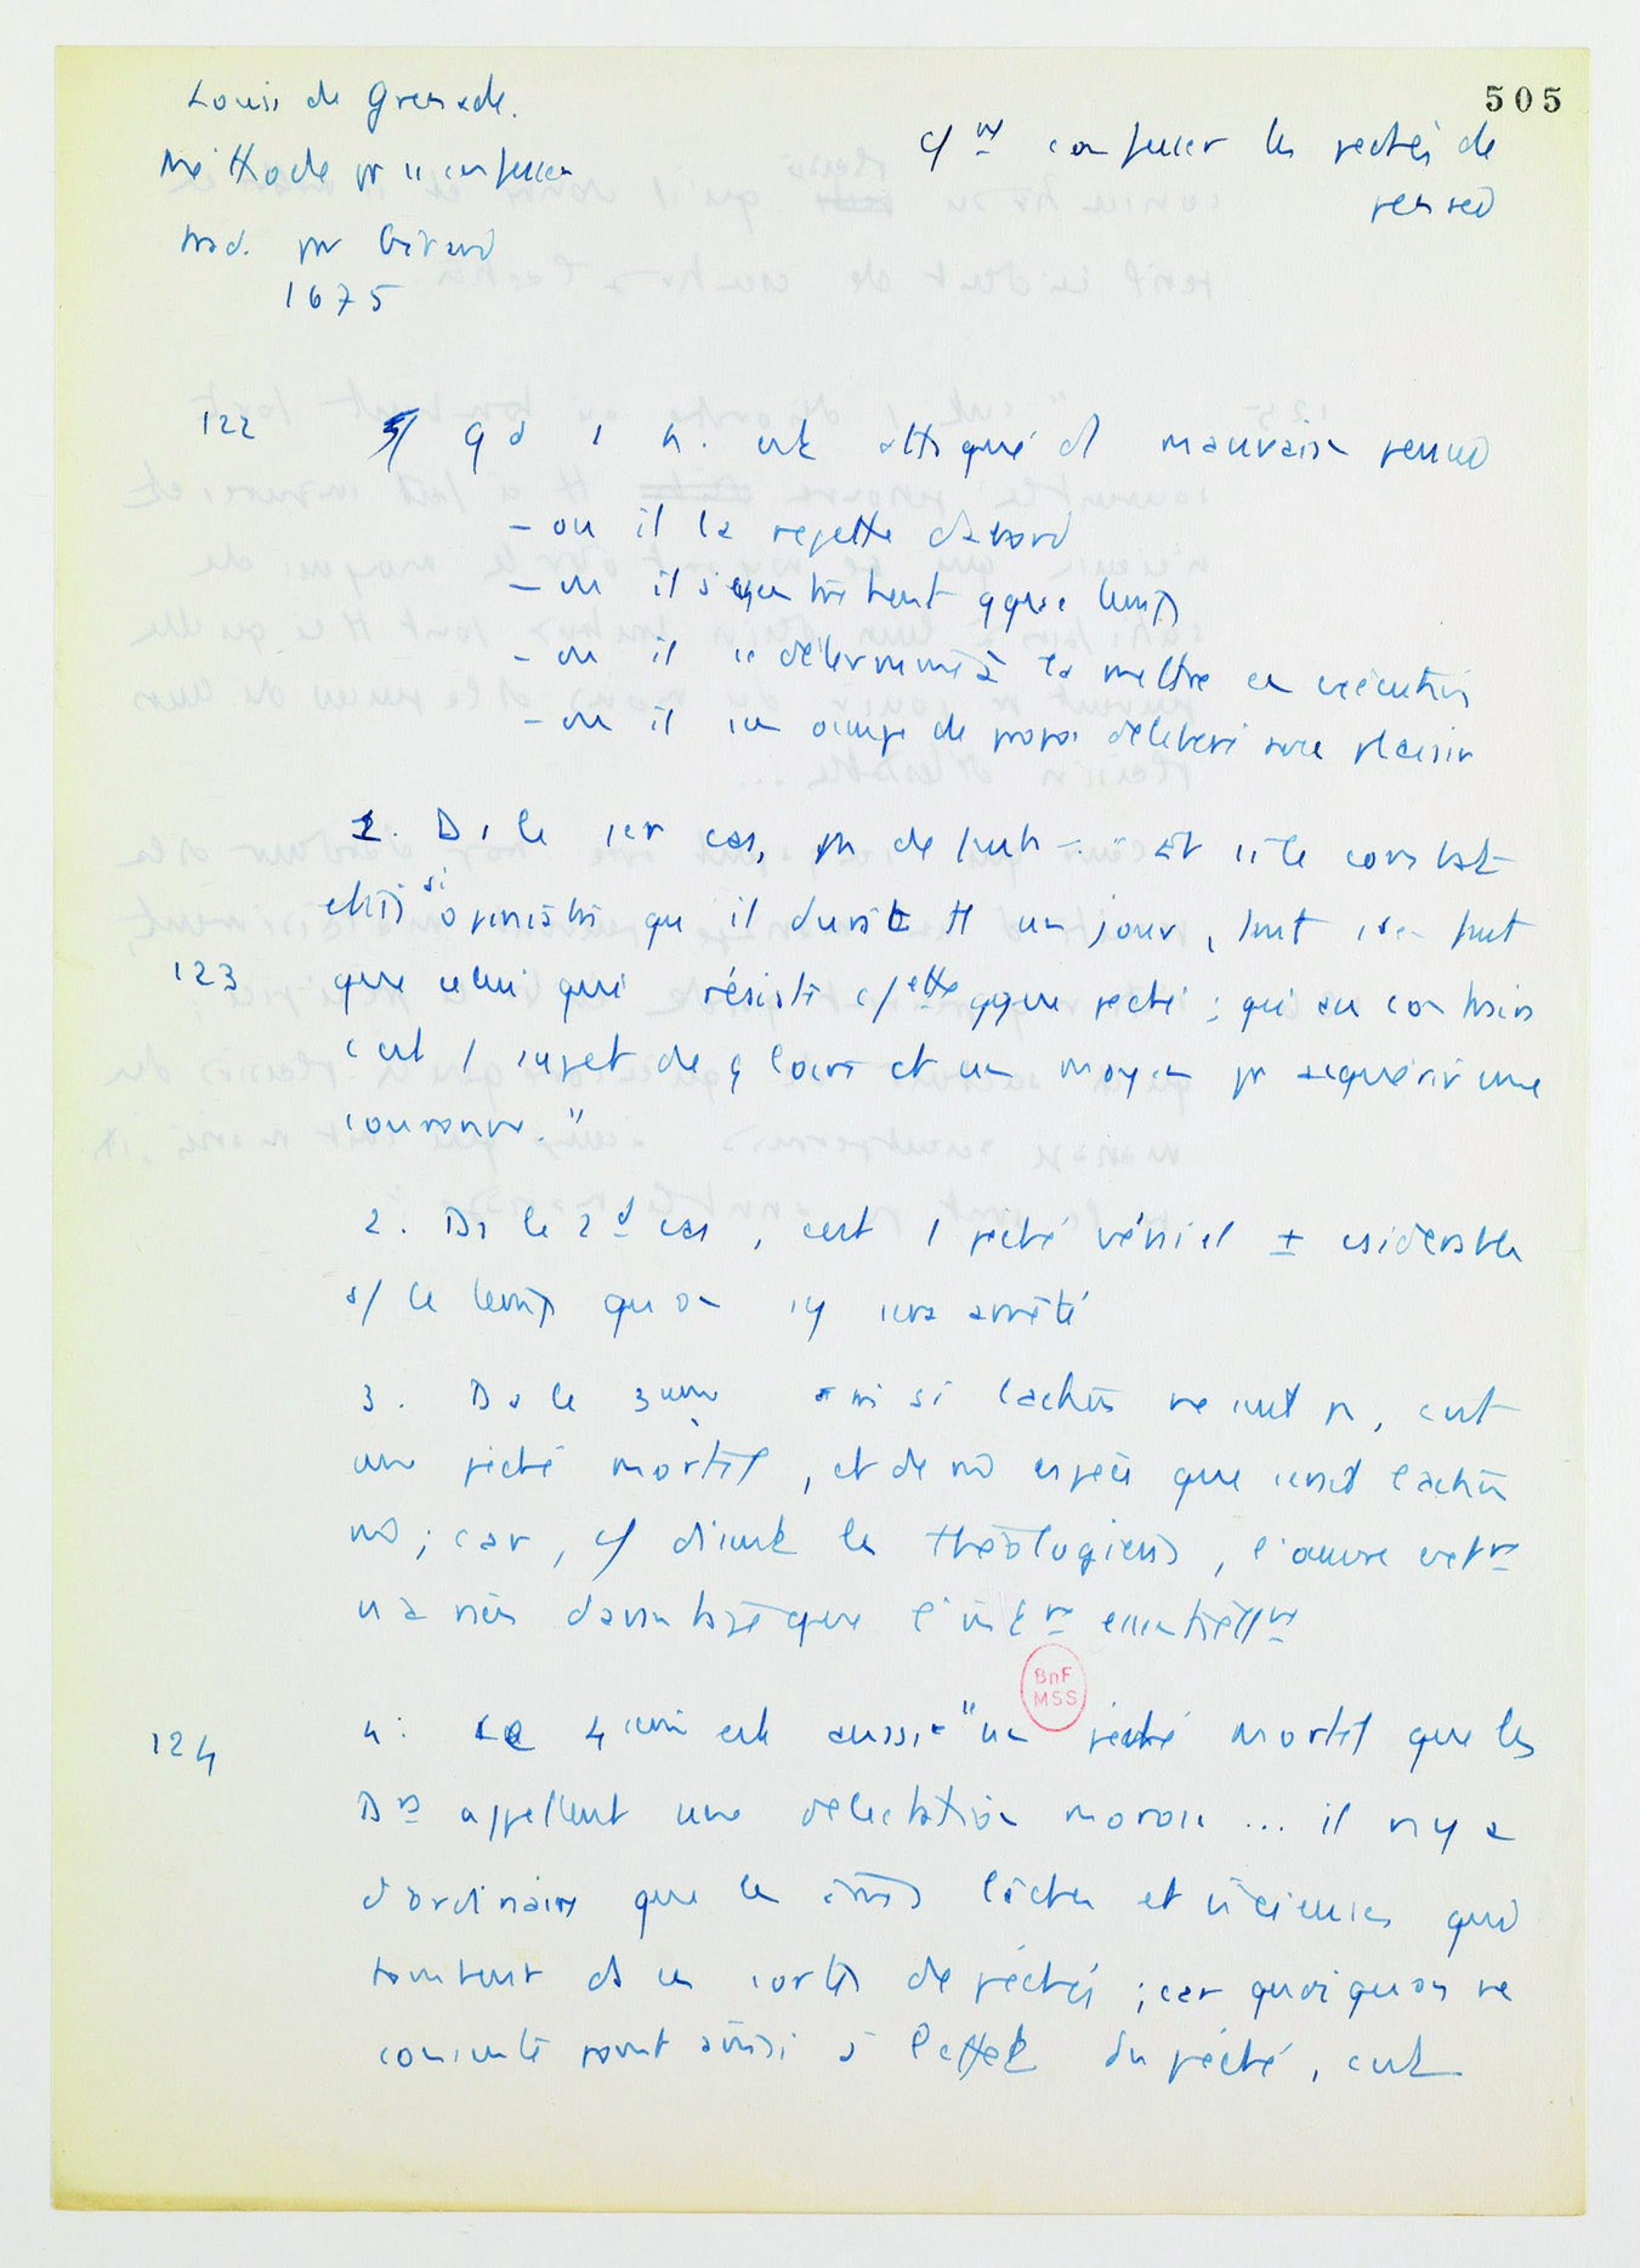 505
Louis de Grenade.
Méthode pr se confesser
trad. par Girard
1675
c/ nt confesser les péchés de
pensée
122
qd 1 h. est attaqué d mauvaise pensée
- ou il la rejette dabord
- ou il s'en tretient qque temps
- ou il se détermine à la mettre en exécution
- ou il s'en occupe de propos délibéré avec plaisir
1. Ds le 1er cas, pt de faute. "Et si le combat
était si opiniâtre qu il durât tt un jour, tant sen faut
123
que celui qui résiste c/ette qque péché ; qui au contraire
c'est 1 sujet de gloire et un moyen pr acquérir une
couronne."
2. Ds le 2d cas, cest 1 péché véniel ± csidérable
s/ le temps quon s'y sera arrêté
3. Ds le 3eme si laction ne suit pas, cest
une péché mortel, et de mê espèce que serait laction
mê ; car, c/ disent les théologiens, l'œuvre extre
n a rien davantage que l'intre essentiellnt
BnF
MSS
124
4. Le 4ième est aussi "un péché mortel que les
Drs appellent une délectation morose ... il ny a
dordinaire que les âmes lâches et vicieuses qui
tombent ds ces sortes de péchés ; car quoiquon ne
consente point ainsi à leffet du péché, cest